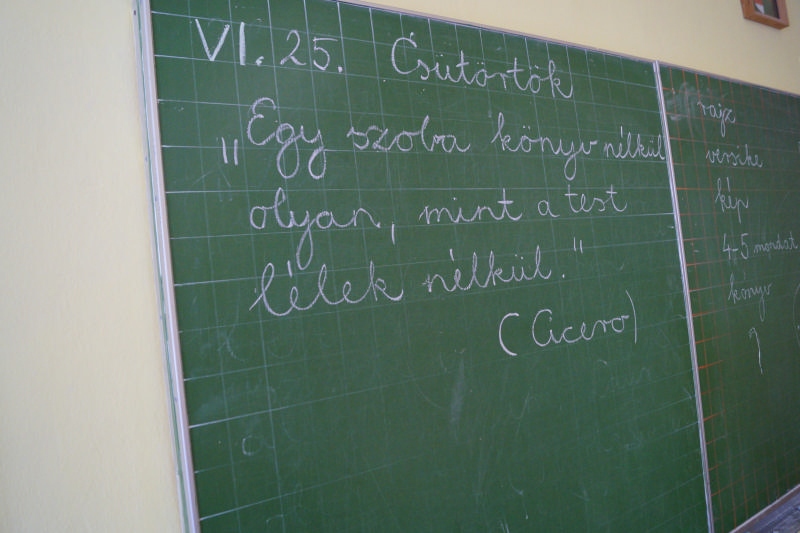 VI. 25. Csütörtök
"Egy szoba könyv nélkül
olyan, mint a test
lélek nélkül."
(Cicero)
rajz
versike
kép
4-5 mondat
könyv
?